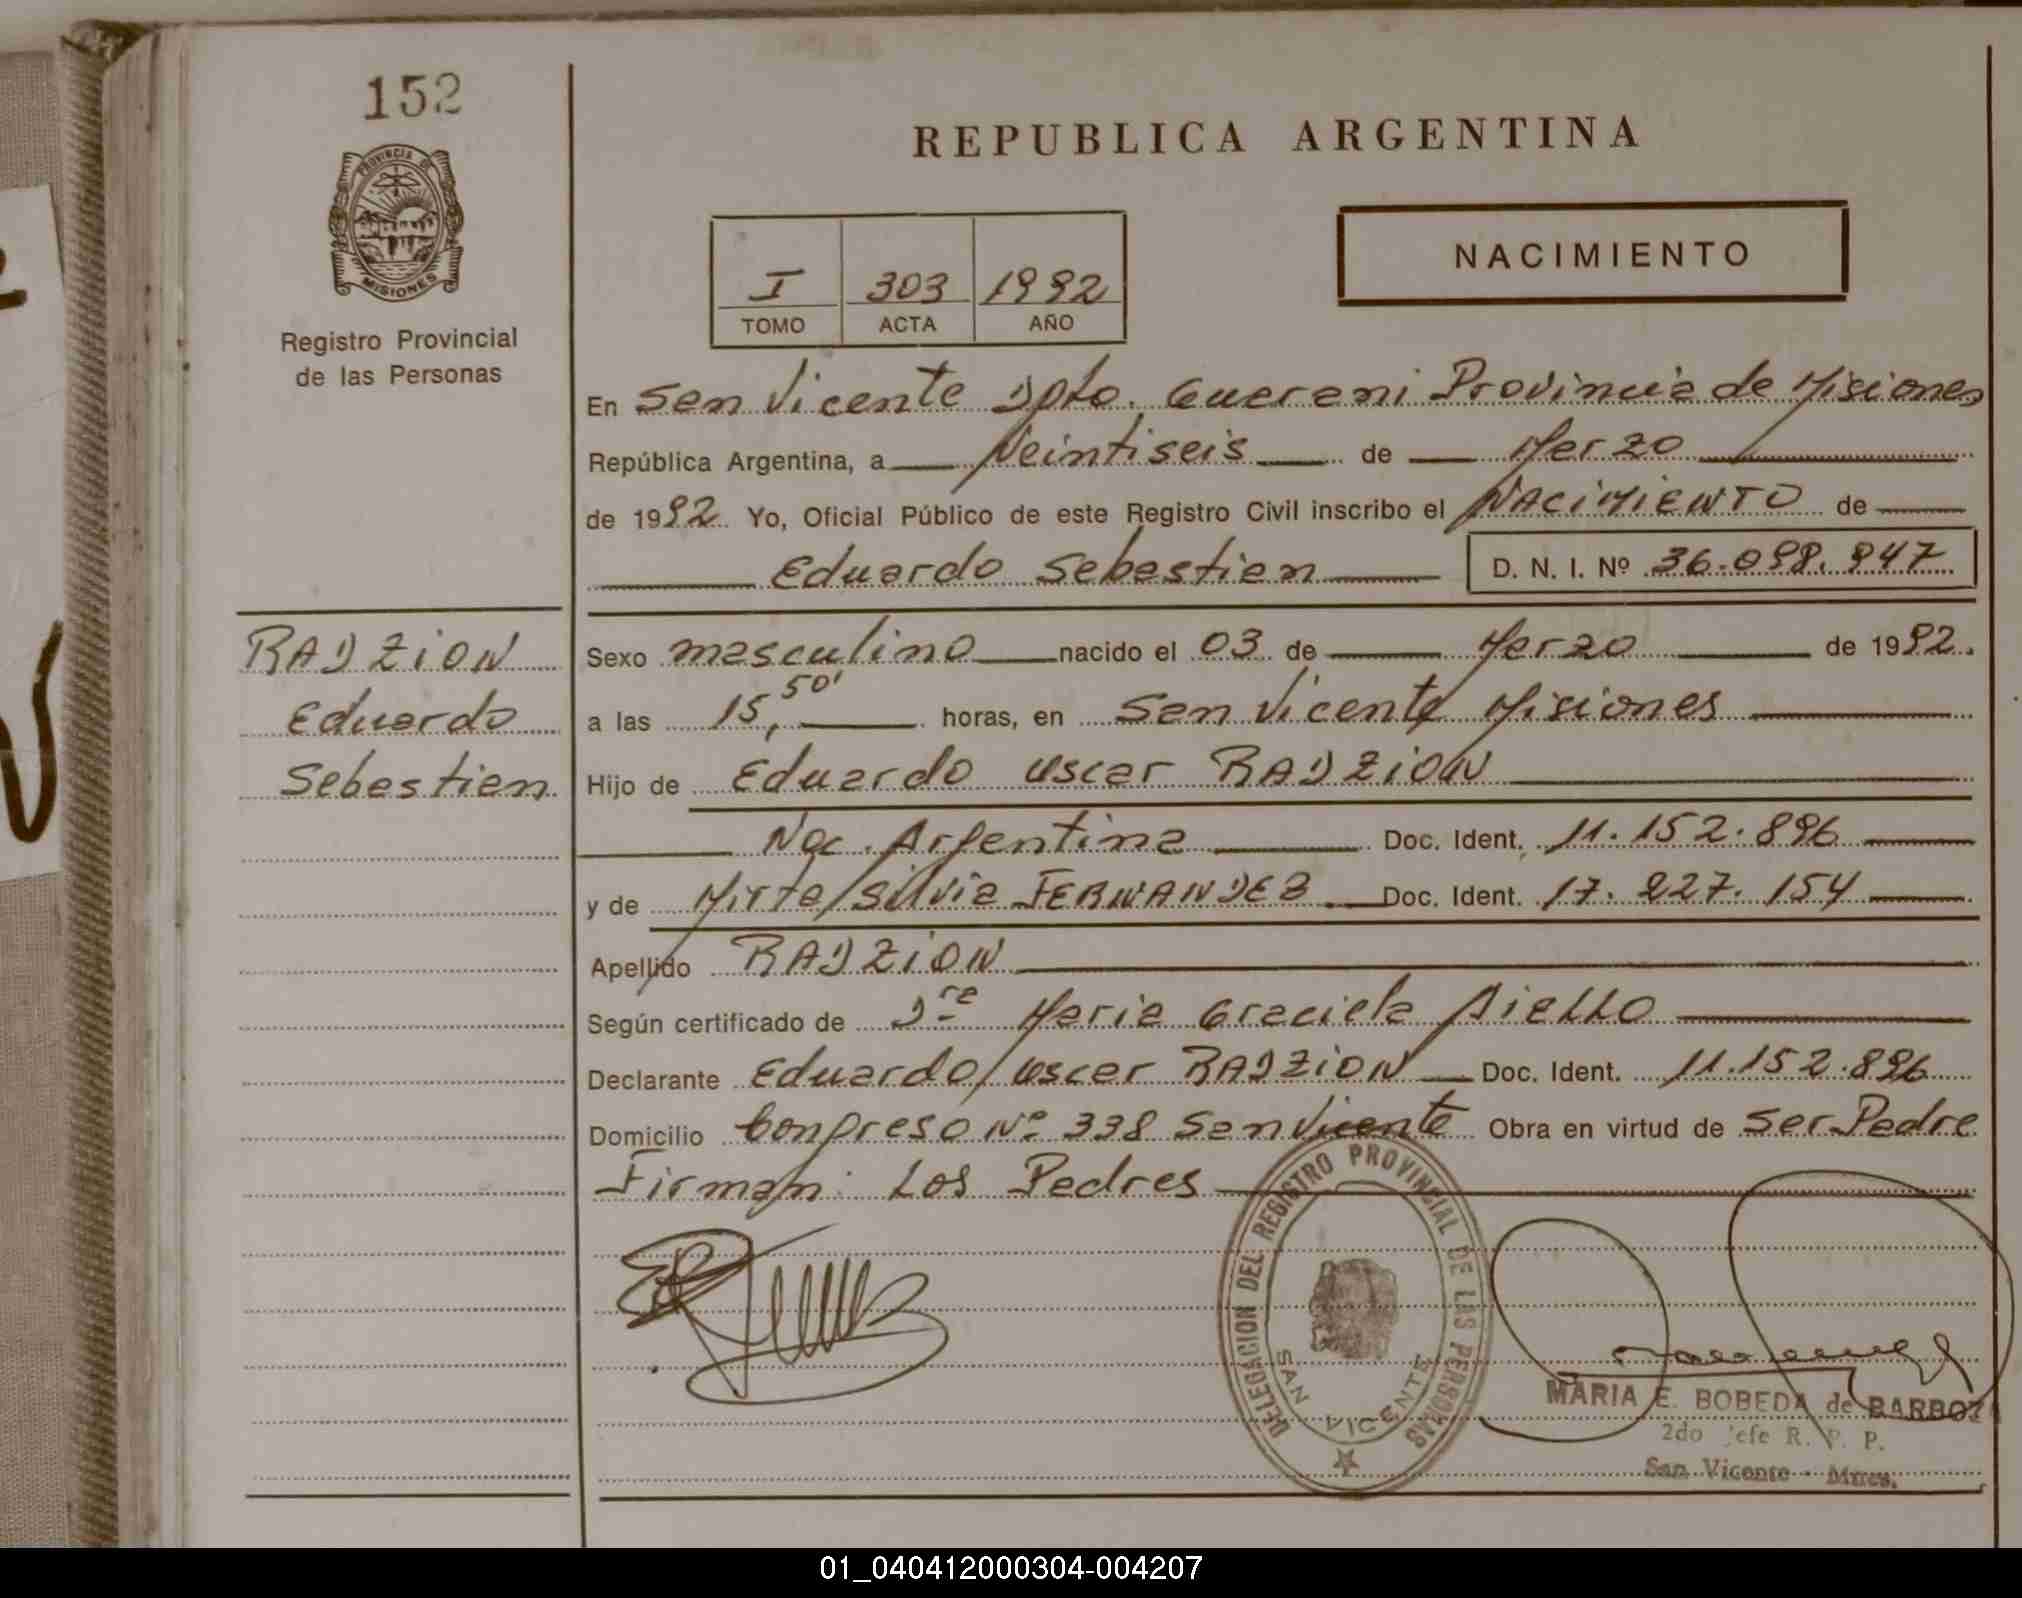 152
PROVINCIA DE
MISIONES
Registro Provincial
de las Personas
REPUBLICA ARGENTINA
I 303 1992
TOMO ACTA AÑO
NACIMIENTO
En San Vicente Dpto. Guarani Provincia de Misiones
República Argentina, a Veintiseis de Marzo
de 1992 Yo, Oficial Público de este Registro Civil inscribo el NACIMIENTO de
Eduardo Sebastian D. N. I. Nº 36.098.947
RADZION
Eduardo
Sebastian
Sexo masculino nacido el 03 de Marzo de 1992.
a las 15,50' horas, en San Vicente Misiones
Hijo de Eduardo Oscar RADZION
Nac. Argentina Doc. Ident. 11.152.896
y de Mirta Silvia FERNANDEZ Doc. Ident. 17.227.154
Apellido RADZION
Según certificado de Dra Maria Graciela Aiello
Declarante Eduardo Oscar RADZION Doc. Ident. 11.152.896
Domicilio Congreso Nº 338 San Vicente Obra en virtud de Ser Padre
Firman: Los Padres
DELEGACION DEL REGISTRO PROVINCIAL DE LAS PERSONAS
SAN VICENTE
MARIA E. BOBEDA de BARBOZ
2do Jefe R. P. P.
San Vicente - Mnes.
01_040412000304-004207